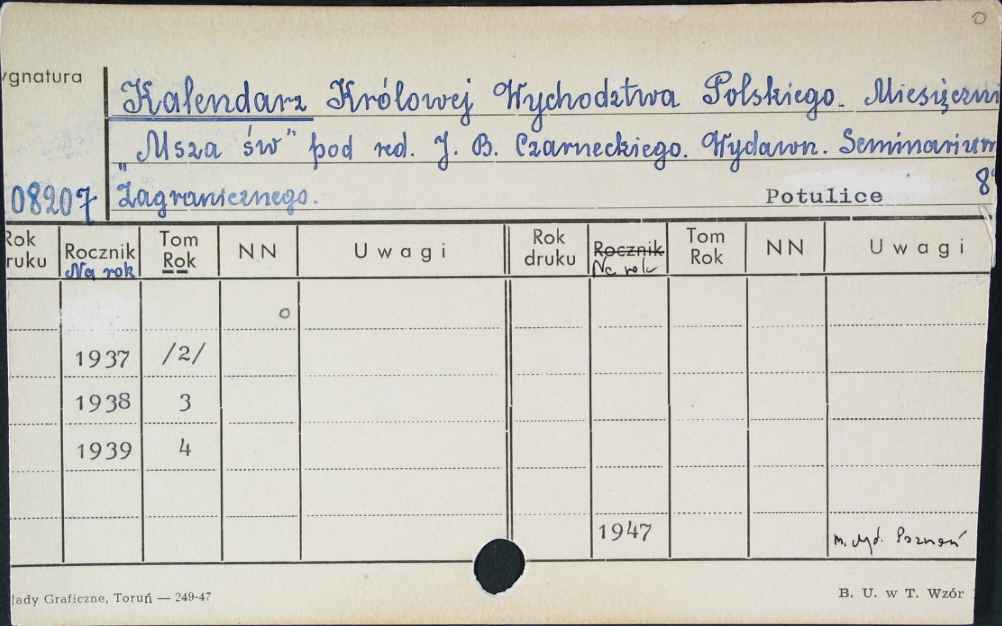 ygnatura
Kalendarz Królowej Wychodztwa Polskiego. Miesięczni
"Msza św" pod red. J. B. Czarneckiego. Wydawn. Seminarium
08207 Zagranicznego. Potulice 8°
Rok druku Rocznik Na rok Tom Rok NN Uwagi Rok druku Rocznik Na rok Tom Rok NN Uwagi
1937 /2/
1938 3
1939 4
1947 m. wyd. Poznań
łady Graficzne, Toruń — 249-47 B. U. w T. Wzór